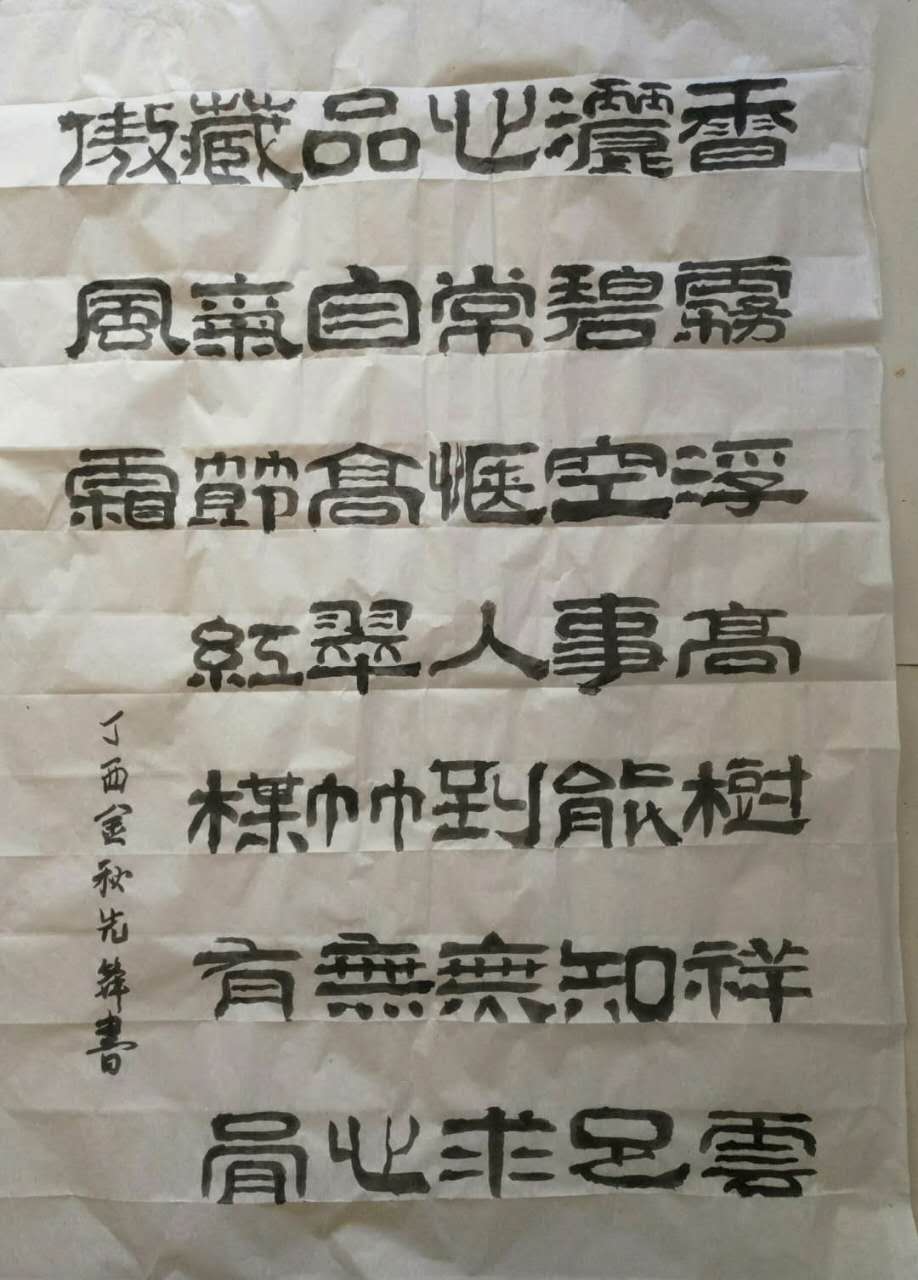 香霧浮高樹祥雲
灑碧空事能知足
心常愜人到無求
品自高翠竹無心
藏氣節紅楳有骨
傲風霜
丁酉金秋先書